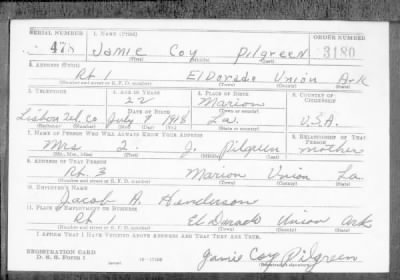 SERIAL NUMBER 1. NAME (Print) ORDER NUMBER
478 Jamie Coy Pilgreen 3180
(First) (Middle) (Last)
2. ADDRESS (Print)
Rt 1 ElDorado Union Ark
(Number and street or R. F. D. number) (Town) (County) (State)
3. TELEPHONE 4. AGE IN YEARS 5. PLACE OF BIRTH 6. COUNTRY OF CITIZENSHIP
22 Marion
DATE OF BIRTH (Town or county)
Lisbon Tel. Co July 9 1918 La. U.S.A.
(Exchange) (Number) (Mo.) (Day) (Yr.) (State or country)
7. NAME OF PERSON WHO WILL ALWAYS KNOW YOUR ADDRESS 8. RELATIONSHIP OF THAT PERSON
Mrs L. J. Pilgreen mother
(Mr., Mrs., Miss) (First) (Middle) (Last)
9. ADDRESS OF THAT PERSON
Rt. 3 Marion Union La
(Number and street or R. F. D. number) (Town) (County) (State)
10. EMPLOYER'S NAME
Jacob H. Henderson
11. PLACE OF EMPLOYMENT OR BUSINESS
Rt 1 El Dorado Union Ark
(Number and street or R. F. D. number) (Town) (County) (State)
I AFFIRM THAT I HAVE VERIFIED ABOVE ANSWERS AND THAT THEY ARE TRUE.
REGISTRATION CARD
D. S. S. Form 1 Jamie Coy Pilgreen
(Registrant's signature)